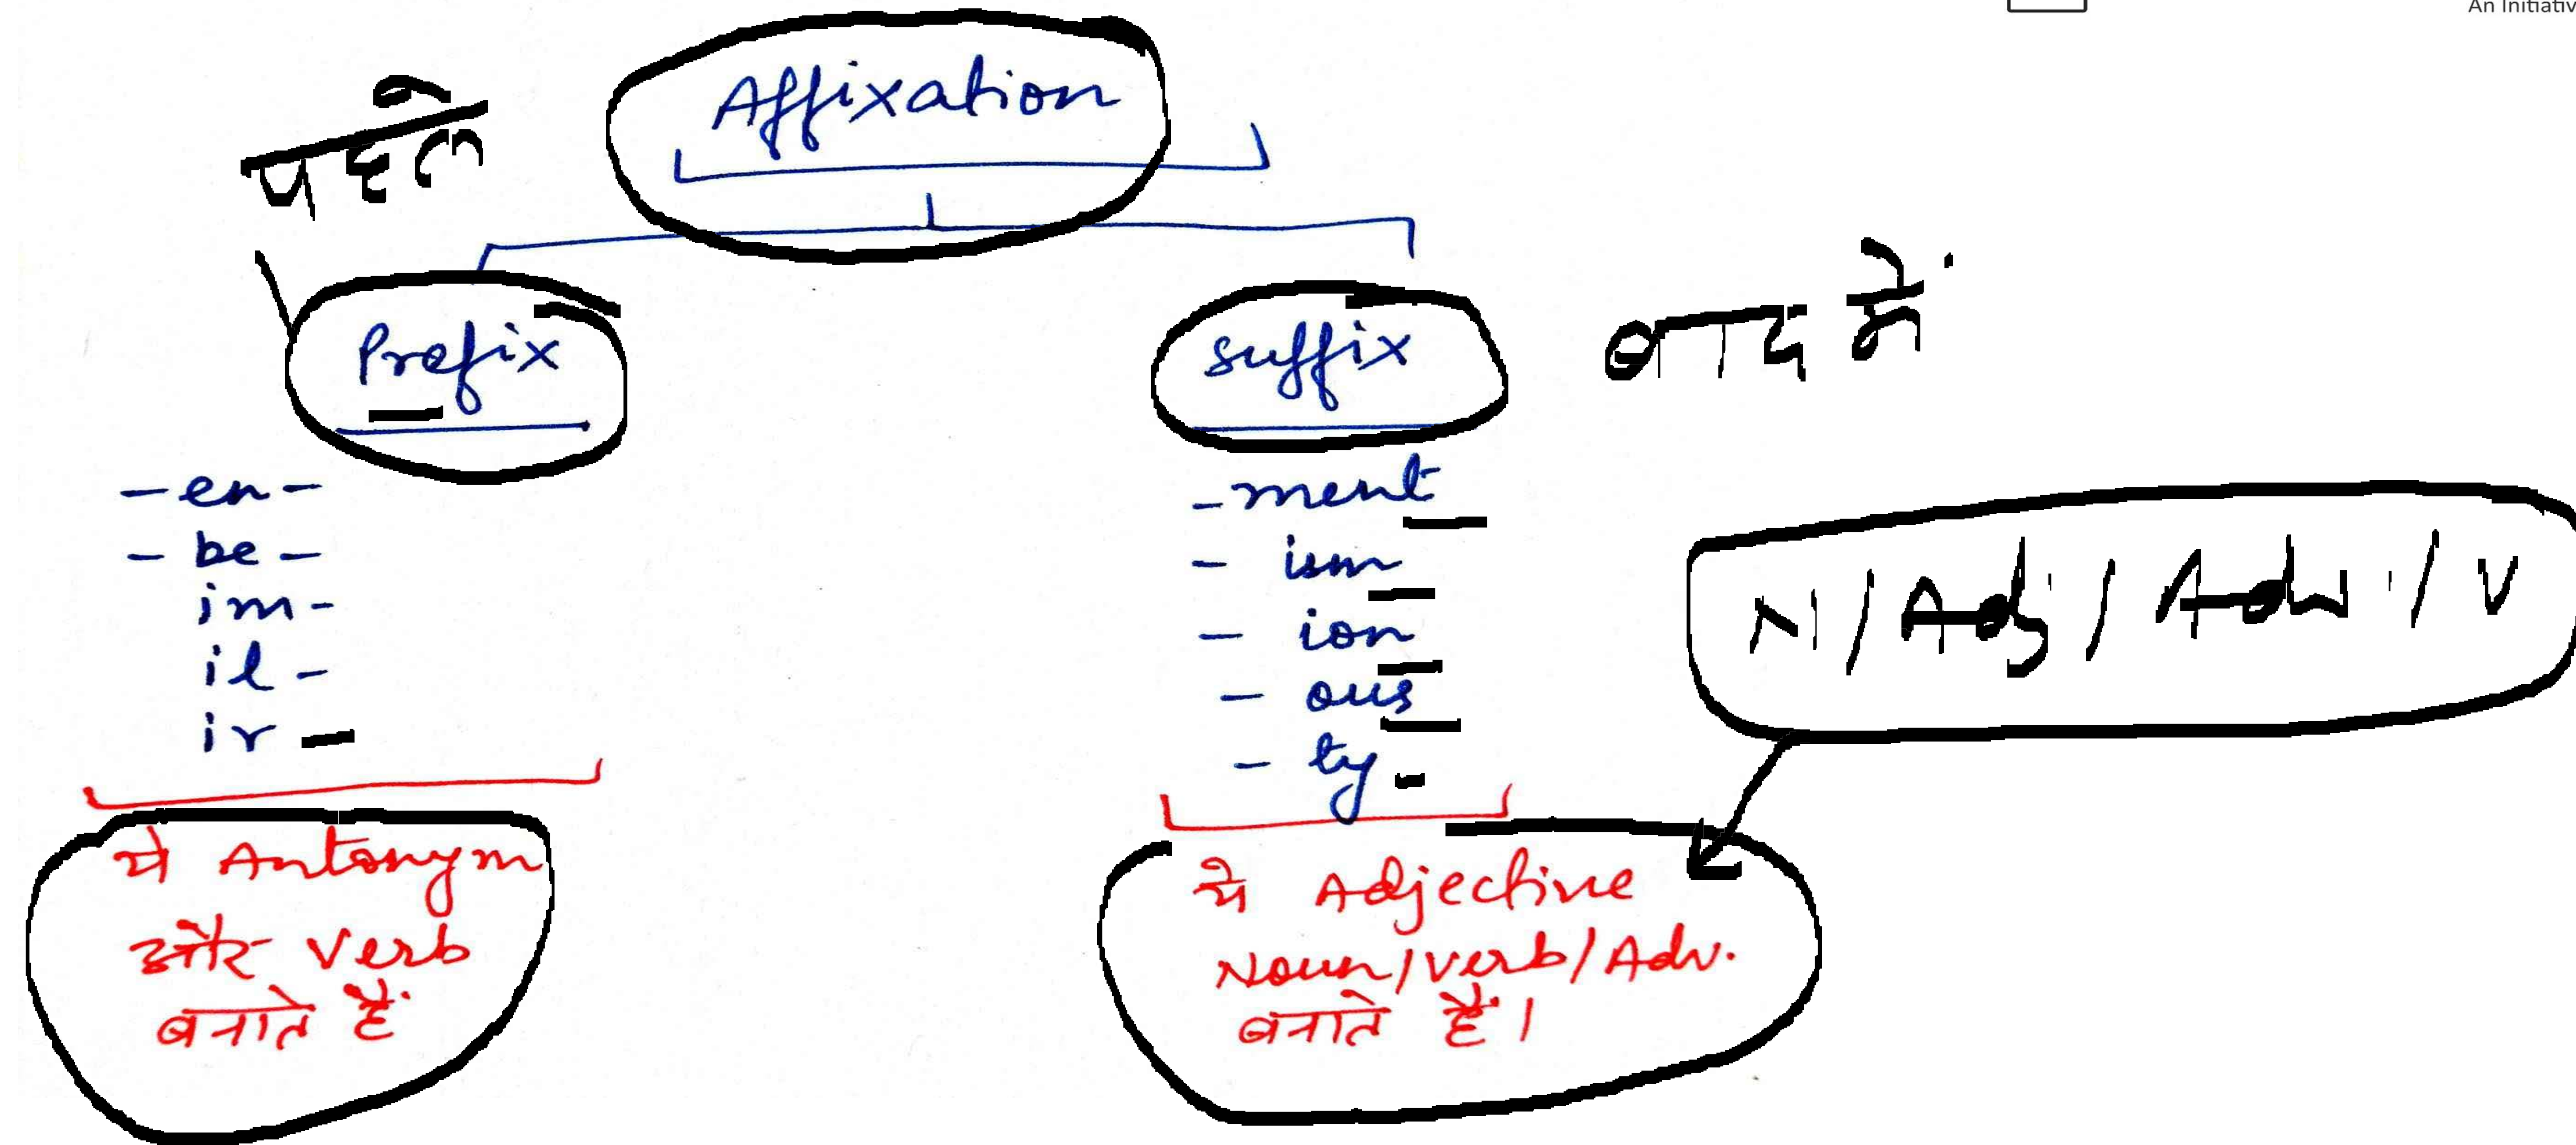 An Initiativ
Affixation
पहले
Prefix
suffix
बाद में
- en -
- be -
im -
il -
ir -
- ment
- ism
- ion
- ous
- ty
N / Adj / Adv / V
ये Antonym
और Verb
बनाते हैं
ये Adjective
Noun/Verb/Adv.
बनाते हैं।